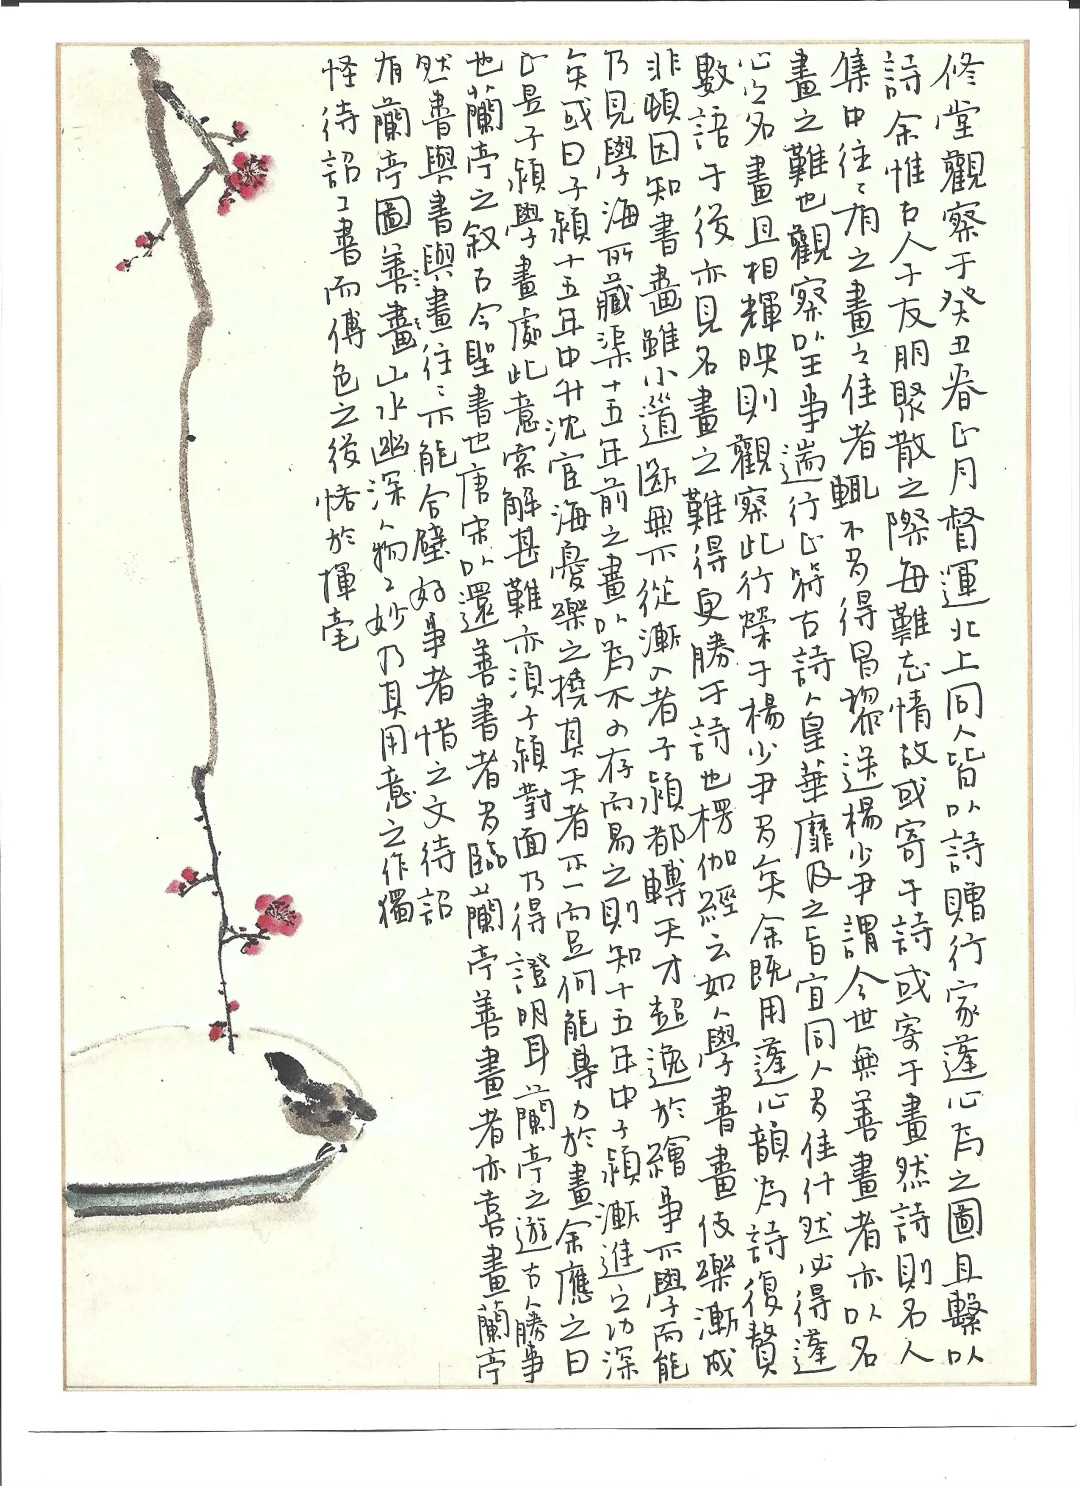 修堂觀察于癸丑春正月督運北上同人皆以詩贈行家蓬心為之圖且繫以
詩余惟古人于友朋聚散之際每難忘情故或寄于詩或寄于畫然詩則名人
集中往〻有之畫之佳者輒不多得昌黎送楊少尹謂今世無善畫者亦以名
畫之難也觀察以王事遄行正符古詩人皇華靡及之旨宜同人多佳什然必得蓬
心之名畫且相輝映則觀察此行榮于楊少尹多矣余既用蓬心韻為詩復贅
數語于後亦見名畫之難得更勝于詩也楞伽經云如人學書畫伎樂漸成
非頓因知書畫雖小道斷無不從漸入者子潁都轉天才超逸於繪事不學而能
乃見學海所藏渠十五年前之畫以為不必存而易之則知十五年中子潁漸進之功深
矣或曰子潁十五年中升沈宦海憂樂之撓其天者不一而足何能專力於畫余應之曰
正是子潁學畫處此意索解甚難亦須子潁對面乃得證明耳蘭亭之遊古勝事
也蘭亭之叙古今聖書也唐宋以還善書者多臨蘭亭善畫者亦喜畫蘭亭
然書與書與畫往〻不能合璧好事者惜之文待詔
有蘭亭圖善畫山水幽深人物之妙乃其用意之作獨
怪待詔工書而傅色之後恡於揮毫